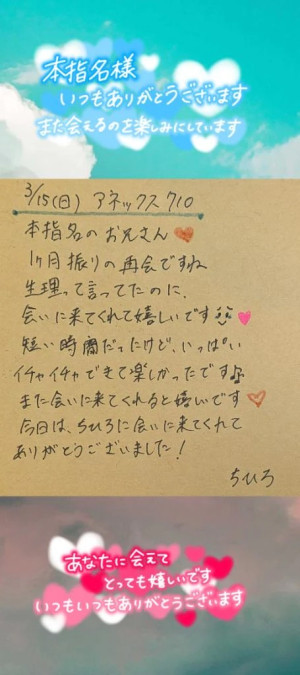 本指名様
いつもありがとうございます
また会えるのを楽しみにしています
3/15(日) アネックス710
本指名のお兄さん
1ヶ月振りの再会ですね
生理って言ってたのに、
会いに来てくれて嬉しいです
短い時間だったけど、いっぱい
イチャイチャできて楽しかったです♪
また会いに来てくれると嬉しいです
今日は、ちひろに会いに来てくれて
ありがとうございました!
ちひろ
あなたに会えて
とっても嬉しいです
いつもいつもありがとうございます